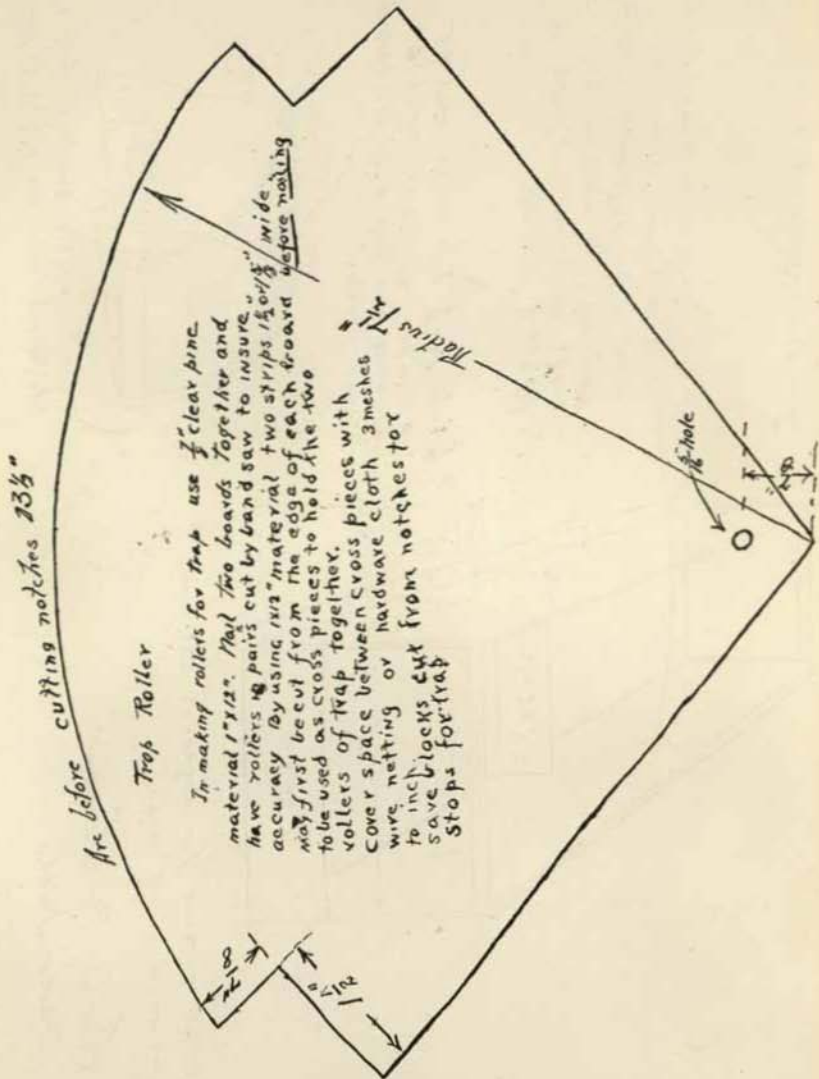 Arc before cutting notches 23½"
Trap Roller
In making rollers for trap use ⅞" clear pine
material 1"x12". Nail two boards together and
have rollers in pairs cut by band saw to insure
accuracy By using 1x12" material two strips wide
may first be cut from the edge of each board before nailing
to be used as cross pieces to hold the two
rollers of trap together.
Cover space between cross pieces with
wire netting or hardware cloth 3 meshes
to inch
save blocks cut from notches for
stops for trap
Radius 7½"
hole
⅞"
1½"